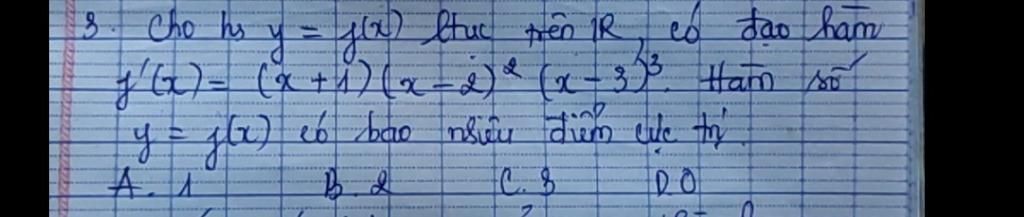 3. Cho hs y = f(x) ltục trên R, có đạo hàm
f'(x) = (x+1)(x-2)² (x-3)³. Hàm số
y = f(x) có bao nhiêu điểm cực trị
A. 1 B. 2 C. 3 D. 0